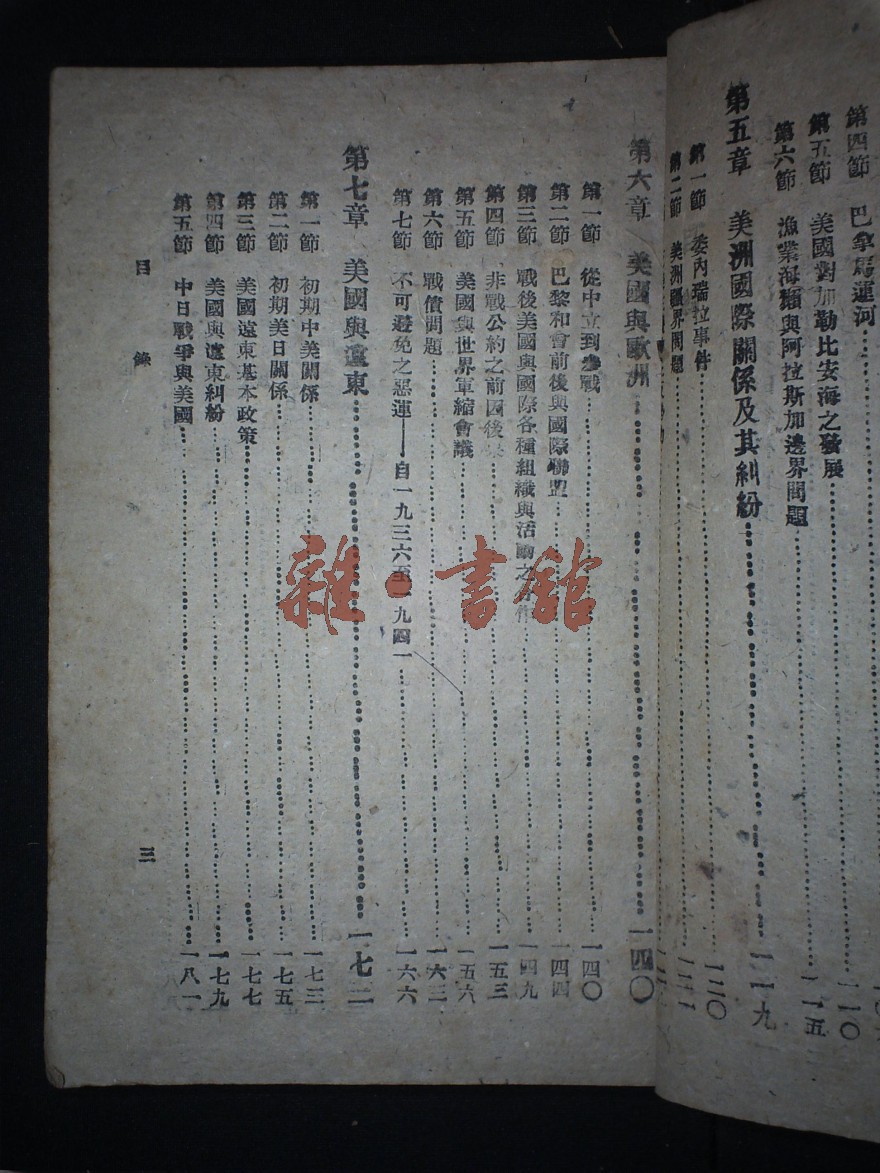 第四節 巴拿馬運河
第五節 美國對加勒比安海之發展 一一〇
第六節 漁業海豹與阿拉斯加邊界問題 一一五
第五章 美洲國際關係及其糾紛 一一九
第一節 委內瑞拉事件 一二〇
第二節 美洲疆界問題
第六章 美國與歐洲 一四〇
第一節 從中立到參戰 一四〇
第二節 巴黎和會前後與國際聯盟 一四四
第三節 戰後美國與國際各種組織與活動之合作 一四九
第四節 非戰公約之前因後果 一五三
第五節 美國與世界軍縮會議 一五六
第六節 戰債問題 一六二
第七節 不可避免之惡運——自一九三六至一九四一 一六六
第七章 美國與遠東 一七二
第一節 初期中美關係 一七三
第二節 初期美日關係 一七五
第三節 美國遠東基本政策 一七七
第四節 美國與遠東糾紛 一七九
第五節 中日戰爭與美國 一八一
目錄 三
雜·書館